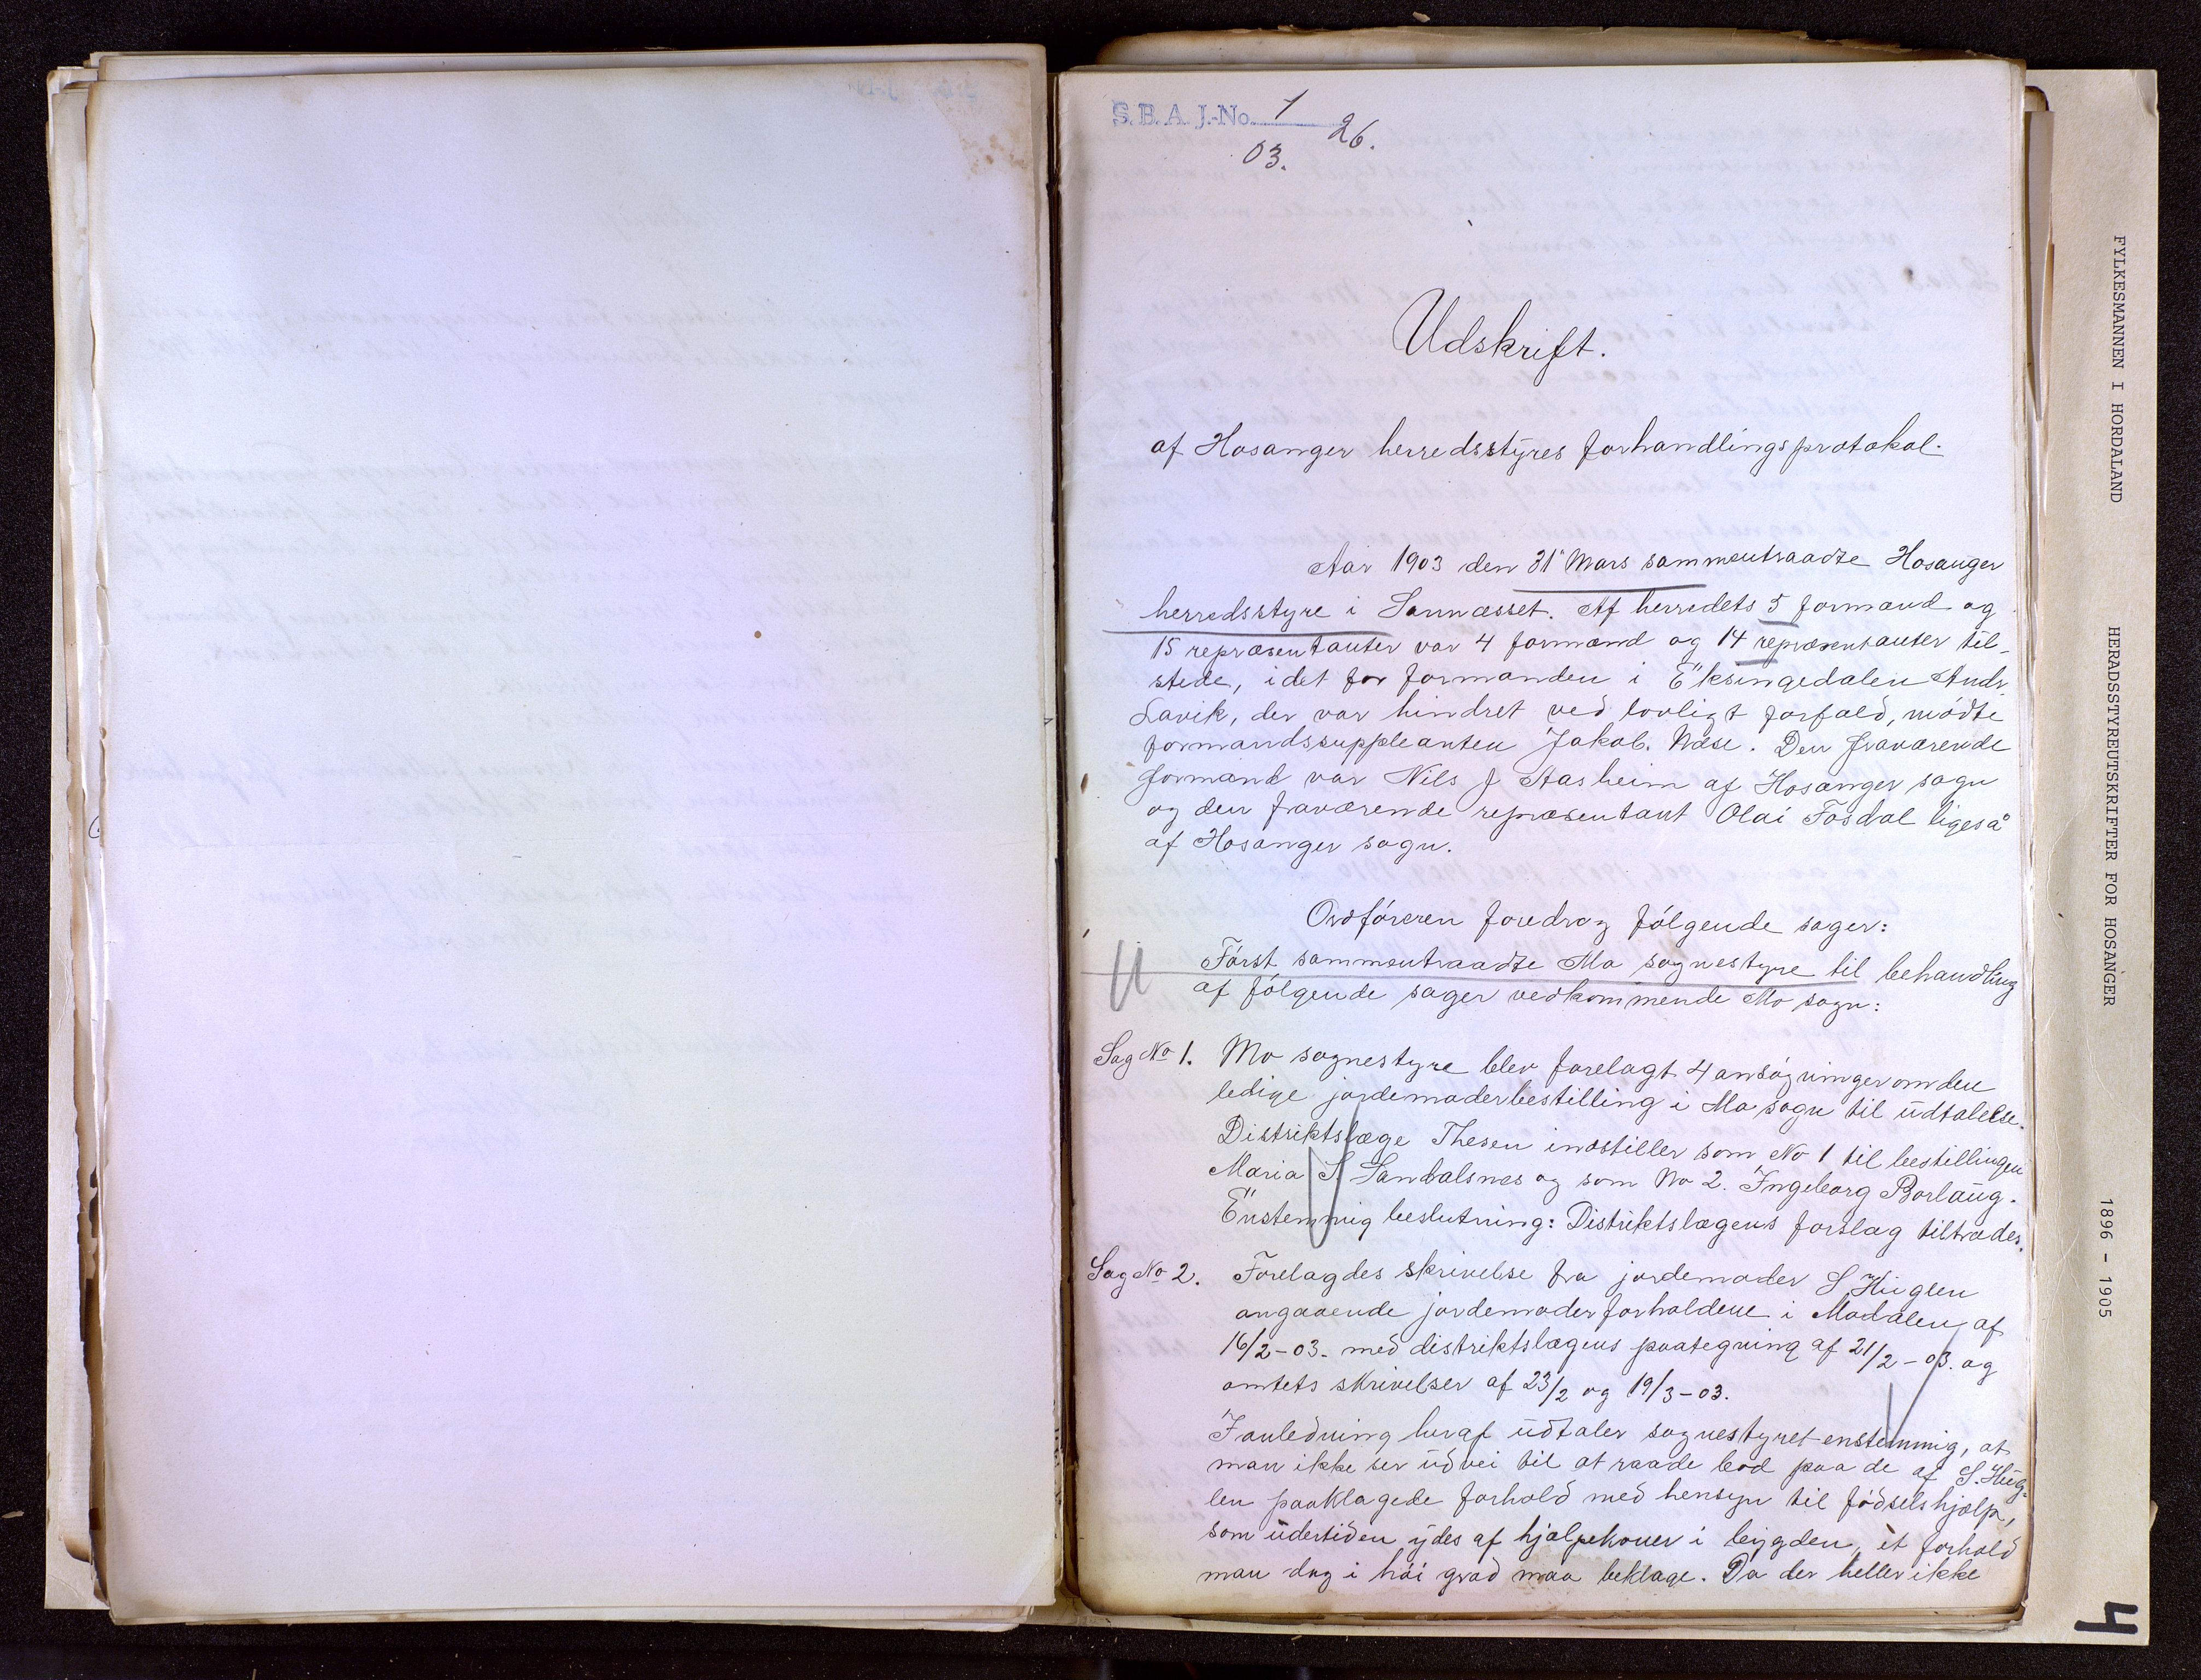 S. B. A. J.-No. 1
26.
03.
Udskrift.
af Hosanger herredsstyres forhandlingsprotokol.
Aar 1903 den 31' Mars sammentraadte Hosanger
herredsstyre i Sannæsset. Af herredets 5 formænd og
15 repræsentanter var 4 formænd og 14 repræsentanter til-
stede, idet for formanden i Eksingedalen Andr.
Lavik, der var hindret ved lovligt forfald, mødte
formandssuppleanten Jakob. Næse. Den fraværende
formand var Nils J Aasheim af Hosanger sogn
og den fraværende repræsentant Olai Fosdal ligeså
af Hosanger sogn.
Ordføreren foredrog følgende sager:
Først sammentraadte Mo sognestyre til behandling
af følgende sager vedkommende Mo sogn:
Sag No 1. Mo sognestyre blev forelagt 4 ansøgninger om den
ledige jordemoderbestilling i Mo sogn til udtalelse.
Distriktslæge Thesen indstiller som No 1 til bestillingen
Maria S. Sandalsnes og som No 2. Ingeborg Borlaug.
Enstemmig beslutning: Distriktslægens forslag tiltrædes.
Sag No 2. Forelagdes skrivelse fra jordemoder S Huglen
angaaende jordemoderforholdene i Modalen af
16/2-03. med distriktslægens paategning af 21/2-03. og
amtets skrivelser af 23/2 og 19/3-03.
I anledning heraf udtaler sognestyret enstemmig, at
man ikke ser udvei til at raade bod paa de af S. Hug-
len paaklagede forhold med hensyn til fødselshjælp,
som udertiden ydes af hjælpekoner i bygden, et forhold
man dog i høi grad maa beklage. Da der heller ikke
FYLKESMANNEN I HORDALAND
HERADSSTYREUTSKRIFTER FOR HOSANGER
1896 - 1905
4